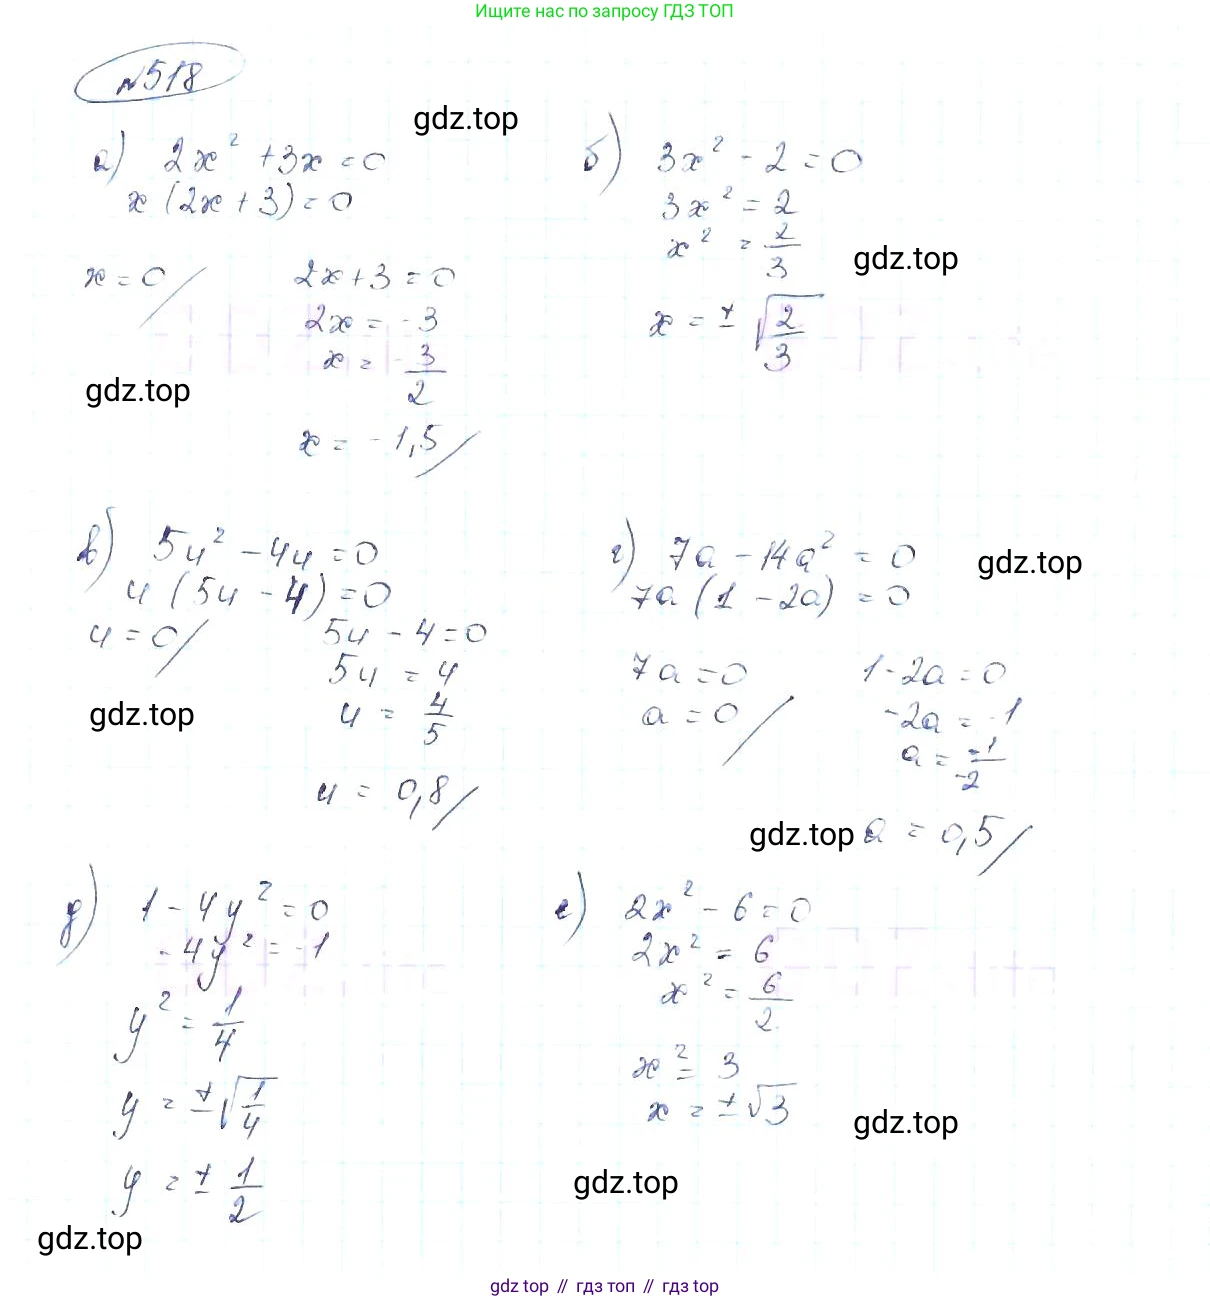 Ищите нас по запросу ГДЗ ТОП
№518
gdz.top
а) 2x² + 3x = 0
x (2x + 3) = 0
x = 0 /
2x + 3 = 0
2x = -3
x = - 3/2
x = -1,5 /
gdz.top
б) 3x² - 2 = 0
3x² = 2
x² = 2/3
gdz.top
x = ± √(2/3)
в) 5u² - 4u = 0
u (5u - 4) = 0
u = 0 /
5u - 4 = 0
5u = 4
u = 4/5
u = 0,8 /
gdz.top
г) 7a - 14a² = 0
gdz.top
7a (1 - 2a) = 0
7a = 0
a = 0 /
1 - 2a = 0
-2a = -1
a = -1/-2
gdz.top
a = 0,5 /
д) 1 - 4y² = 0
-4y² = -1
y² = 1/4
y = ± √(1/4)
y = ± 1/2
gdz.top
е) 2x² - 6 = 0
2x² = 6
x² = 6/2
x² = 3
x = ± √3
gdz.top
gdz.top
gdz top // гдз топ // gdz top